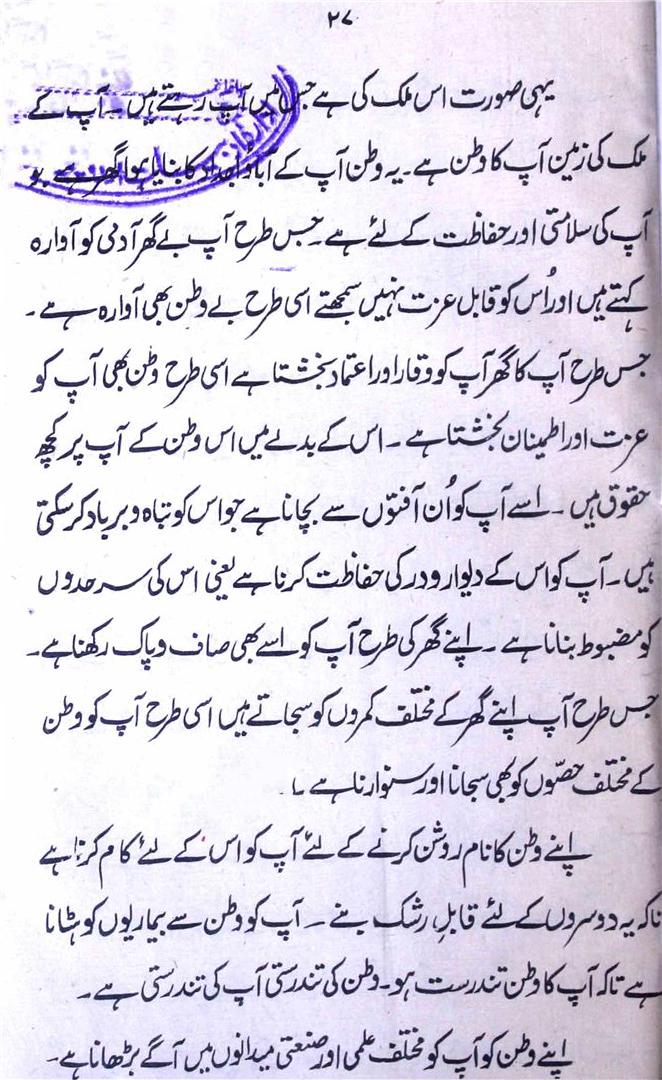 ۲۷
یہی صورت اس ملک کی ہے جس میں آپ رہتے ہیں ۔ آپ کے
ملک کی زمین آپ کا وطن ہے ۔ یہ وطن آپ کے آباؤ اجداد کا بنایا ہوا گھر ہے جو
آپ کی سلامتی اور حفاظت کے لئے ہے ۔ جس طرح آپ بے گھر آدمی کو آوارہ
کہتے ہیں اور اُس کو قابل عزت نہیں سمجھتے اسی طرح بے وطن بھی آوارہ ہے ۔
جس طرح آپ کا گھر آپ کو وقار اور اعتماد بخشتا ہے اسی طرح وطن بھی آپ کو
عزت اور اطمینان بخشتا ہے ۔ اس کے بدلے میں اس وطن کے آپ پر کچھ
حقوق ہیں ۔ اسے آپ کو اُن آفتوں سے بچانا ہے جو اس کو تباہ و برباد کر سکتی
ہیں ۔ آپ کو اس کے دیوار و در کی حفاظت کرنا ہے یعنی اس کی سرحدوں
کو مضبوط بنانا ہے ۔ اپنے گھر کی طرح آپ کو اسے بھی صاف و پاک رکھنا ہے ۔
جس طرح آپ اپنے گھر کے مختلف کمروں کو سجاتے ہیں اسی طرح آپ کو وطن
کے مختلف حصّوں کو بھی سجانا اور سنوارنا ہے ۔
اپنے وطن کا نام روشن کرنے کے لئے آپ کو اس کے لئے کام کرنا ہے
تاکہ یہ دوسروں کے لئے قابلِ رشک بنے ۔ آپ کو وطن سے بیماریوں کو ہٹانا
ہے تاکہ آپ کا وطن تندرست ہو ۔ وطن کی تندرستی آپ کی تندرستی ہے ۔
اپنے وطن کو آپ کو مختلف علمی اور صنعتی میدانوں میں آگے بڑھانا ہے ۔